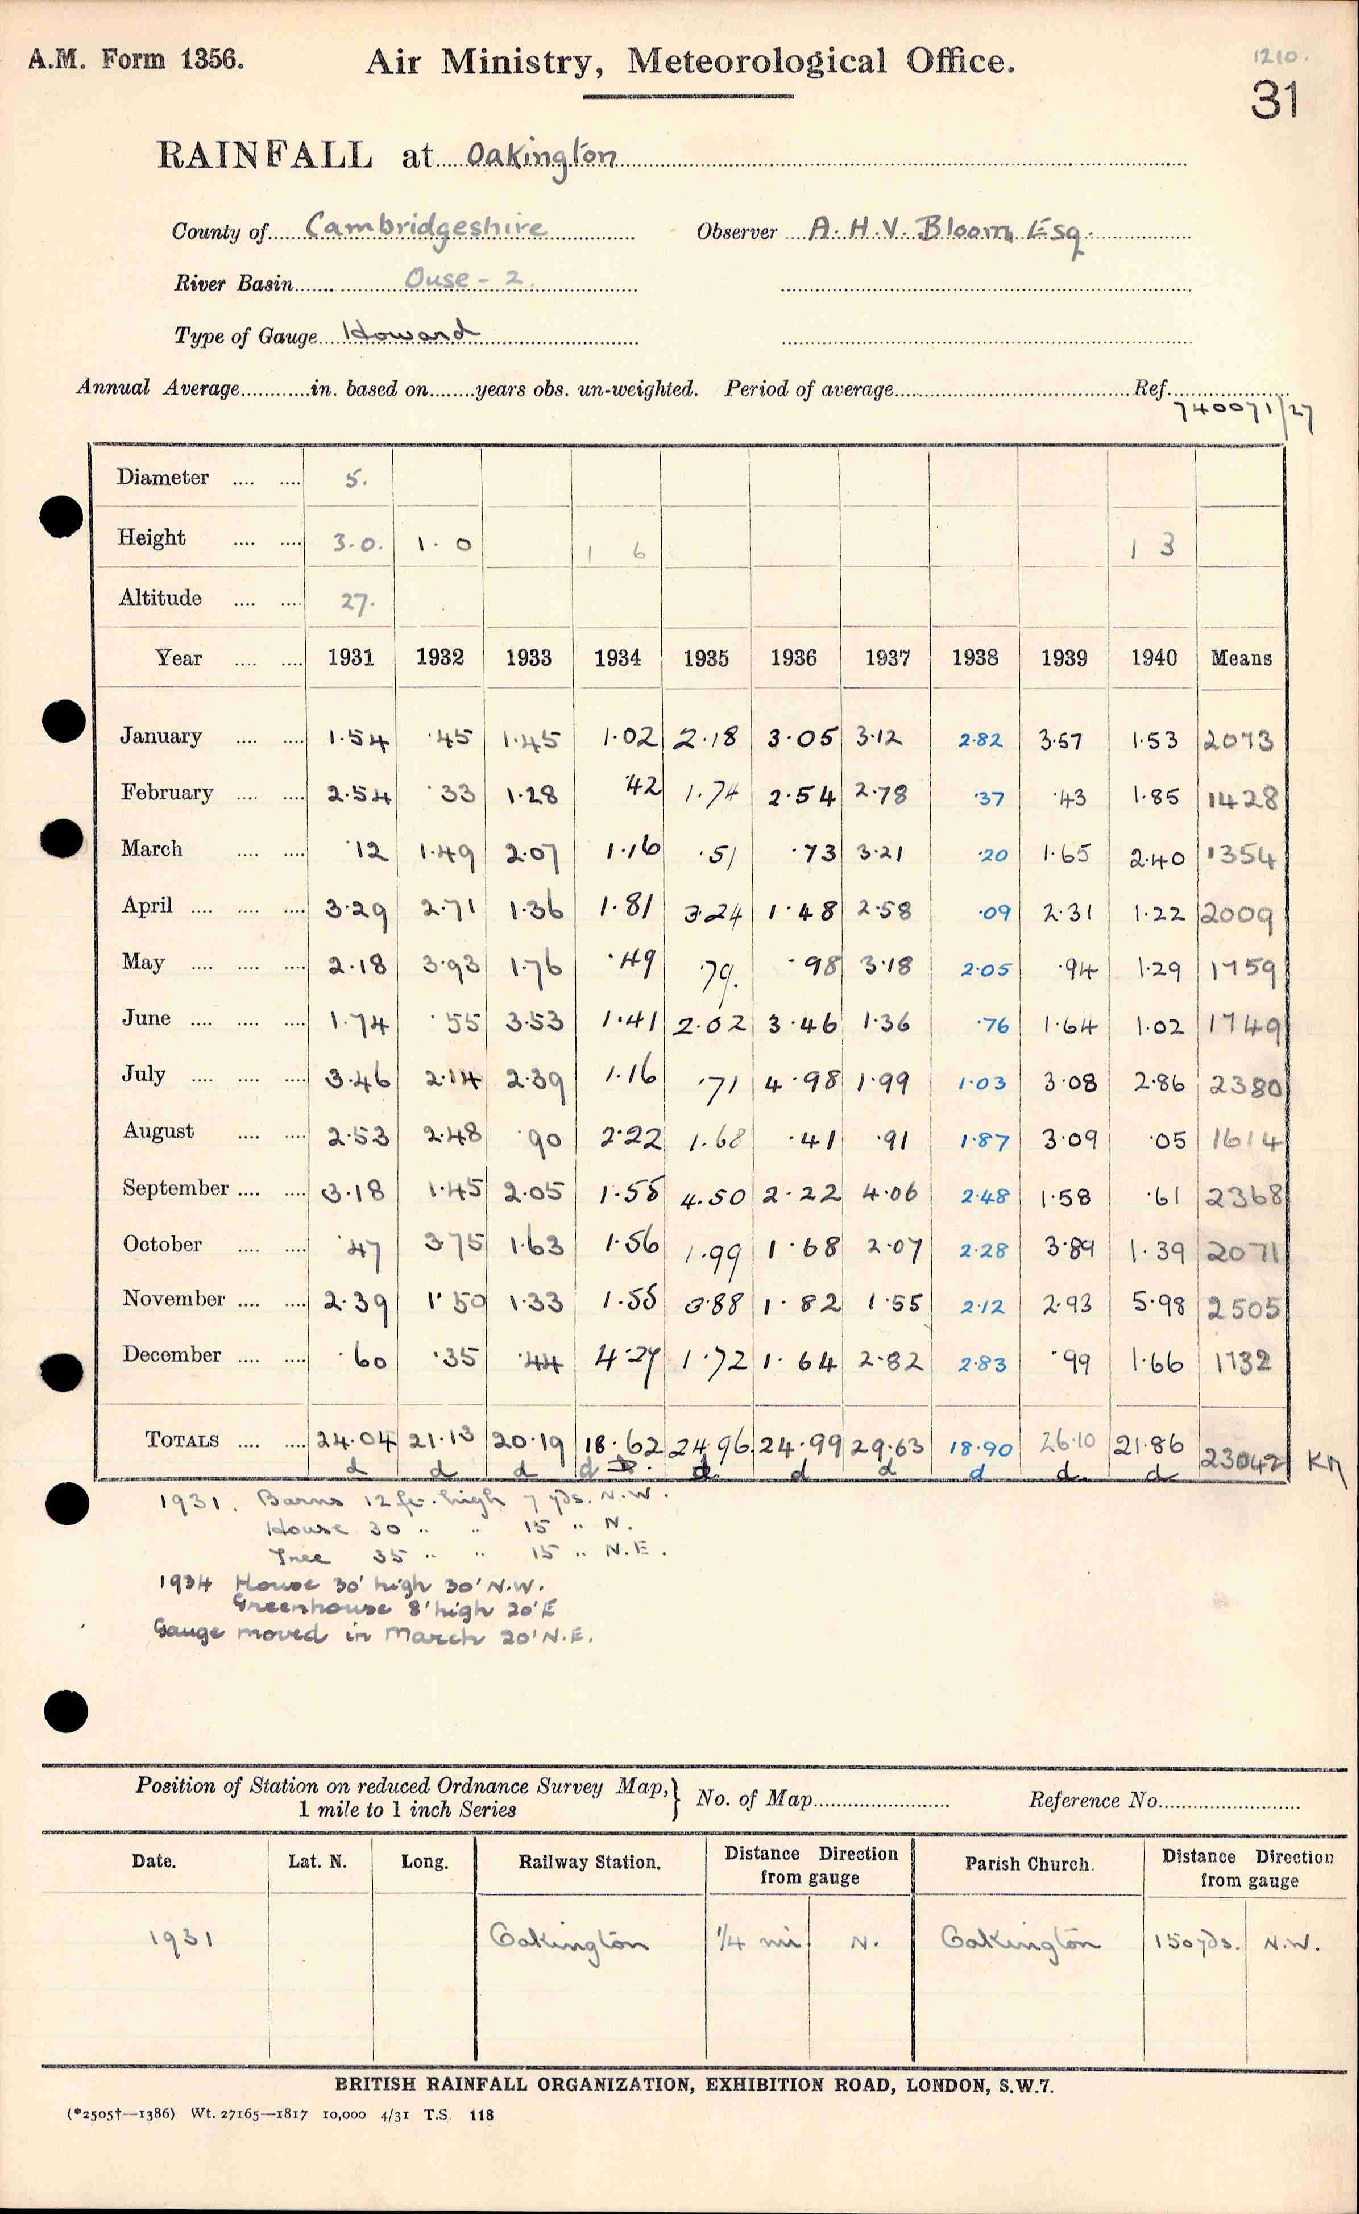 A.M. Form 1356. Air Ministry, Meteorological Office. 1210.
31
RAINFALL at Oakington
County of Cambridgeshire Observer A. H. V. Bloom Esq.
River Basin Ouse - 2.
Type of Gauge Howard
Annual Average in. based on years obs. un-weighted. Period of average Ref.
740071/27
Diameter 5.
Height 3.0. 1.0 1 6 1 3
Altitude 27.
Year 1931 1932 1933 1934 1935 1936 1937 1938 1939 1940 Means
January 1.54 .45 1.45 1.02 2.18 3.05 3.12 2.82 3.57 1.53 2073
February 2.54 .33 1.28 .42 1.74 2.54 2.78 .37 .43 1.85 1428
March .12 1.49 2.07 1.16 .51 .73 3.21 .20 1.65 2.40 1354
April 3.29 2.71 1.36 1.81 3.24 1.48 2.58 .09 2.31 1.22 2009
May 2.18 3.93 1.76 .49 .79. .98 3.18 2.05 .94 1.29 1759
June 1.74 .55 3.53 1.41 2.02 3.46 1.36 .76 1.64 1.02 1749
July 3.46 2.14 2.39 1.16 .71 4.98 1.99 1.03 3.08 2.86 2380
August 2.53 2.48 .90 2.22 1.68 .41 .91 1.87 3.09 .05 1614
September 3.18 1.45 2.05 1.55 4.50 2.22 4.06 2.48 1.58 .61 2368
October .47 3.75 1.63 1.56 1.99 1.68 2.07 2.28 3.89 1.39 2071
November 2.39 1.50 1.33 1.55 3.88 1.82 1.55 2.12 2.93 5.98 2505
December .60 .35 .44 4.27 1.72 1.64 2.82 2.83 .99 1.66 1732
TOTALS 24.04 21.13 20.19 18.62 24.96 24.99 29.63 18.90 26.10 21.86 23042
d d d d d d d d d d
1931. Barns 12 ft. high 7 yds. N.W.
House 30 " " 15 " N.
Tree 35 " " 15 " N.E.
1934 House 30' high 30' N.W.
Greenhouse 8' high 20' E
Gauge moved in March 20' N.E.
Position of Station on reduced Ordnance Survey Map,} No. of Map Reference No.
1 mile to 1 inch Series
Date. Lat. N. Long. Railway Station. Distance Direction from gauge Parish Church. Distance Direction from gauge
1931 Oakington 1/4 mi. N. Oakington 150 yds. N.W.
BRITISH RAINFALL ORGANIZATION, EXHIBITION ROAD, LONDON, S.W.7.
(*2505†—1386) Wt. 27165—1817 10,000 4/31 T.S. 118